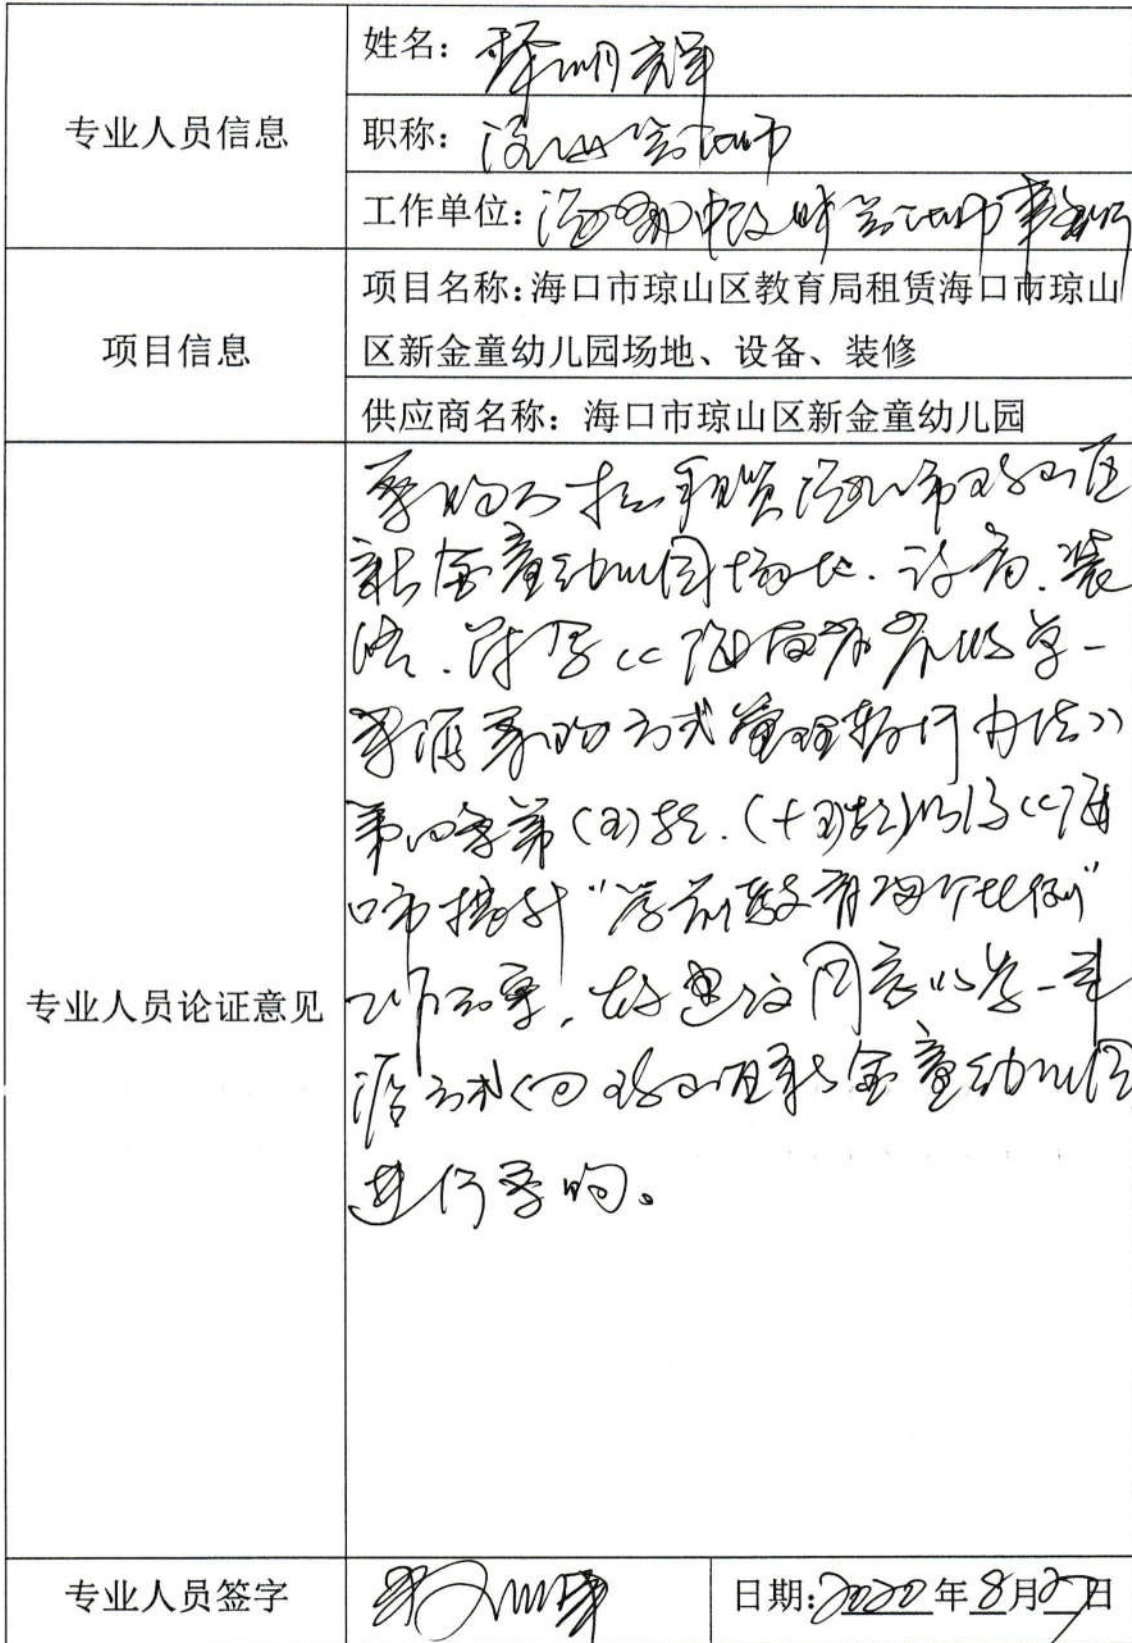 专业人员信息
姓名：
职称：会计师
工作单位：海南中
会计师事务所
项目信息
项目名称：海口市琼山区教育局租赁海口市琼山
区新金童幼儿园场地、设备、装修
供应商名称：海口市琼山区新金童幼儿园
专业人员论证意见
采购人拟租赁海口市琼山区
新金童幼儿园场地、设备、装
修、符合《海南省省级单一
来源采购方式管理暂行办法》
第四条第（五）款、（十五）款以及《海
口市提升“学前教育两个比例”
方案，故建议同意以单一来
源方式向琼山区新金童幼儿园
进行采购。
专业人员签字
日期：2020年8月27日